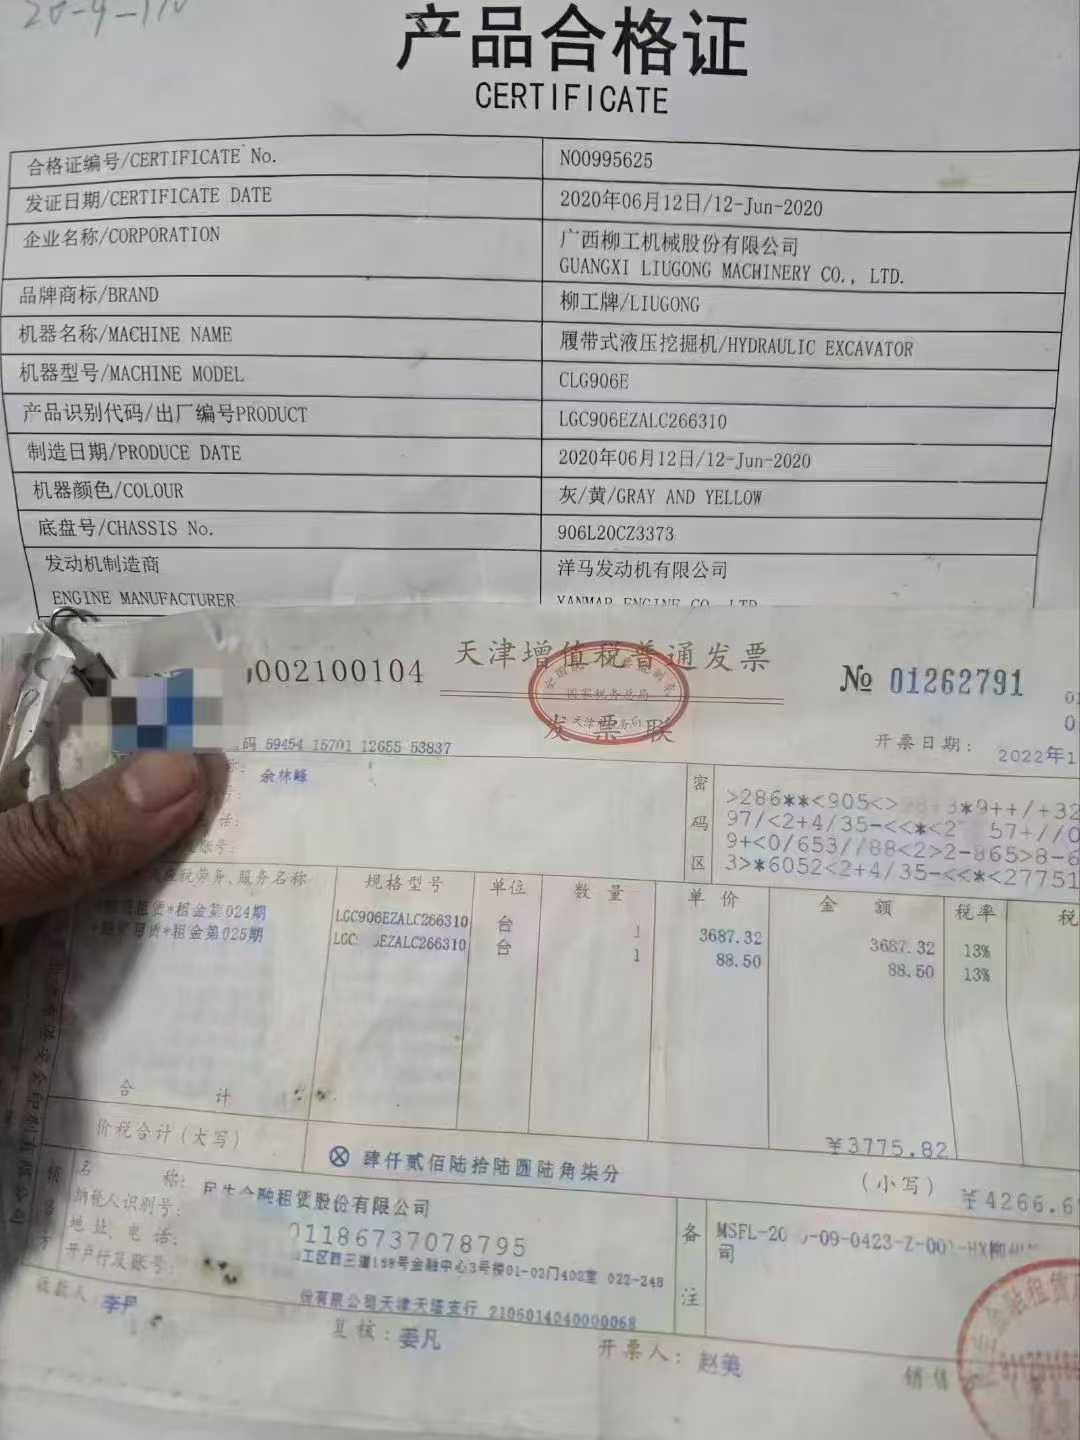 产品合格证
CERTIFICATE
合格证编号/CERTIFICATE No. NO0995625
发证日期/CERTIFICATE DATE 2020年06月12日/12-Jun-2020
企业名称/CORPORATION 广西柳工机械股份有限公司
GUANGXI LIUGONG MACHINERY CO., LTD.
品牌商标/BRAND 柳工牌/LIUGONG
机器名称/MACHINE NAME 履带式液压挖掘机/HYDRAULIC EXCAVATOR
机器型号/MACHINE MODEL CLG906E
产品识别代码/出厂编号PRODUCT LGC906EZALC266310
制造日期/PRODUCE DATE 2020年06月12日/12-Jun-2020
机器颜色/COLOUR 灰/黄/GRAY AND YELLOW
底盘号/CHASSIS No. 906L20CZ3373
发动机制造商 洋马发动机有限公司
ENGINE MANUFACTURER YANMAR ENGINE CO., LTD
002100104 天津增值税普通发票 № 01262791
国家税务总局
发票联
开票日期: 2022年1
码 59454 15701 12655 53837
余林峰
密码区
>286**<905<> 3*9++/+32
97/<2+4/35-<<*<2 57+//0
9+<0/653//88<2>2-865>8-6
3>*6052<2+4/35-<<*<27751
应税劳务、服务名称 规格型号 单位 数量 单价 金额 税率 税
租赁*租金第024期 LGC906EZALC266310 台 1 3687.32 3687.32 13%
租金第025期 LGC EZALC266310 台 1 88.50 88.50 13%
合计 ¥3775.82
价税合计(大写) ⊗ 肆仟贰佰陆拾陆圆陆角柒分 (小写) ¥4266.6
名称: 金融租赁股份有限公司
纳税人识别号: 011867370 78795
地址、电话: 工区西三道158号金融中心3号楼01-02门402室 022-248
开户行及账号: 份有限公司天津天隆支行 2106014040000068
备注
MSFL-20 -09-0423-Z-001-HX柳州
司
收款人: 李 复核: 姜凡 开票人: 赵美 销售
金融租赁